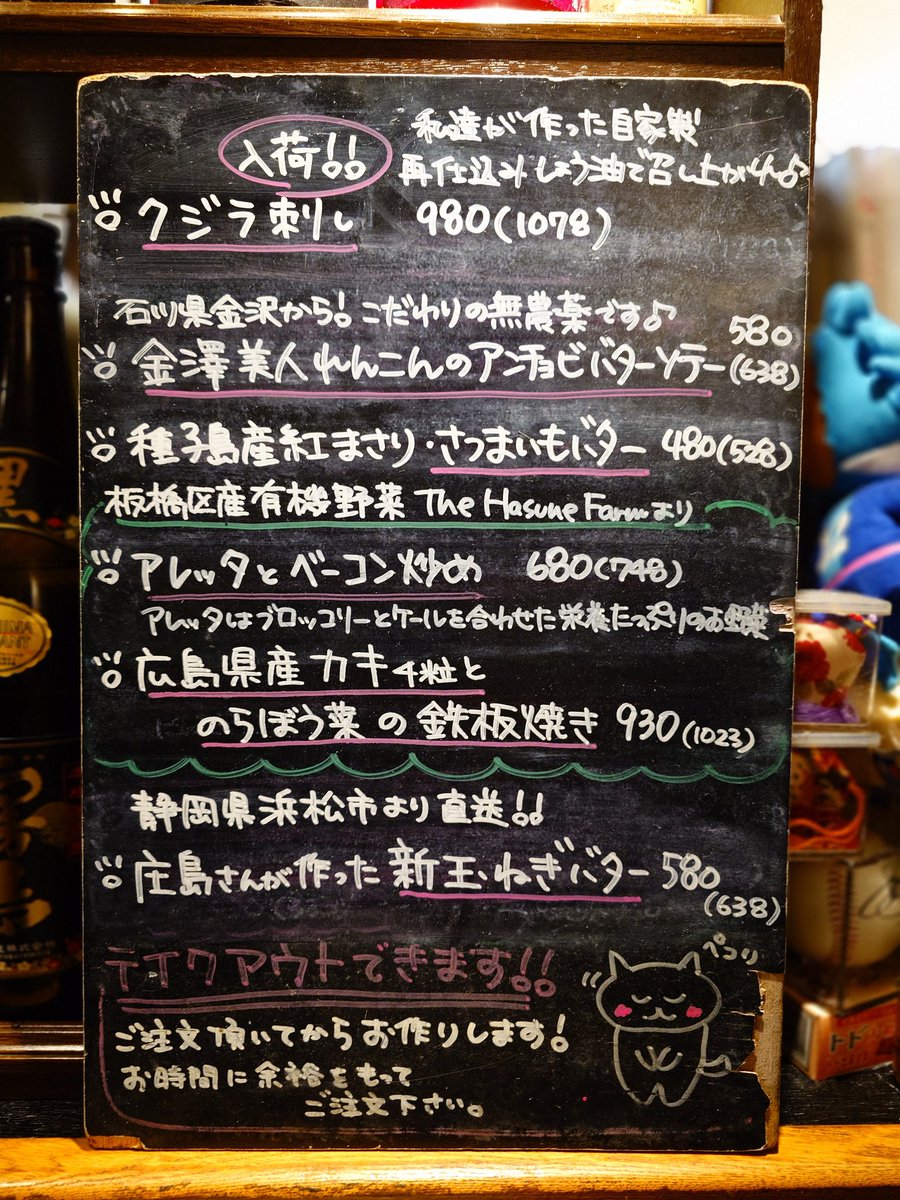 私達が作った自家製
入荷!!
再仕込みしょう油で召し上がれ♪
クジラ刺し 980(1078)
石川県金沢から!こだわりの無農薬です♪
580
金澤美人れんこんのアンチョビバターソテー(638)
種子島産紅まさり・さつまいもバター 480(528)
板橋区産有機野菜 The Hasune Farmより
アレッタとベーコン炒め 680(748)
アレッタはブロッコリーとケールを合わせた栄養たっぷりのお野菜
広島県産カキ4粒と
のらぼう菜の鉄板焼き 930(1023)
静岡県浜松市より直送!!
庄島さんが作った新玉ねぎバター 580
(638)
テイクアウトできます!!
ペコリ
ご注文頂いてからお作りします!
お時間に余裕をもって
ご注文下さい。
黒